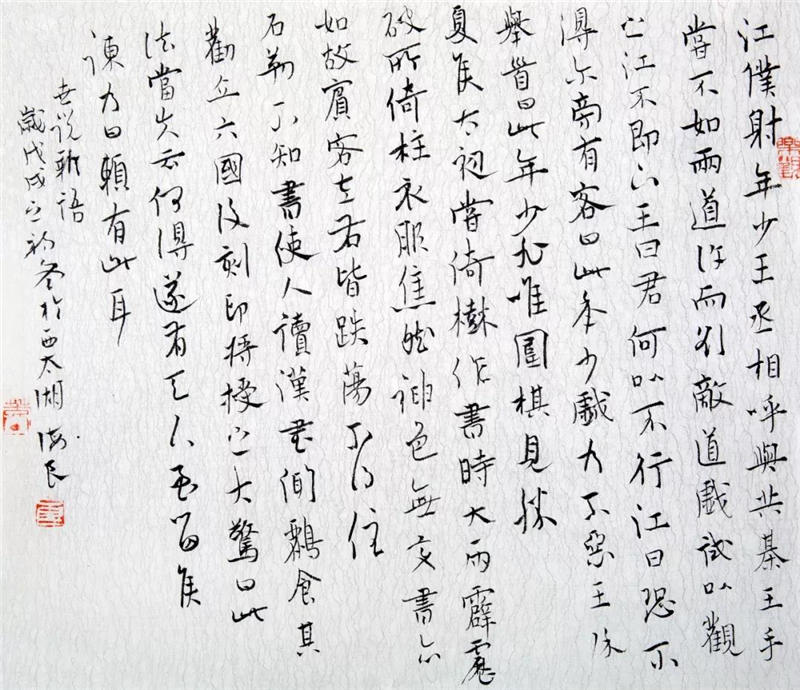 江僕射年少王丞相呼與共棊王手
嘗不如兩道許而欲敵道戲試以觀
之江不即下王曰君何以不行江曰恐不
得尔旁有客曰此年少戲乃不惡王徐
舉首曰此年少非唯圍棋見勝
夏侯太初嘗倚樹作書時大雨霹靂
破所倚柱衣服焦然神色無變書亦
如故賓客左右皆跌蕩不得住
石勒不知書使人讀漢書聞酈食其
勸立六國後刻印將授之大驚曰此
法當失云何得遂有天下至留侯
諫乃曰賴有此耳
世说新語
歲戊戌之初冬於西太湖海民